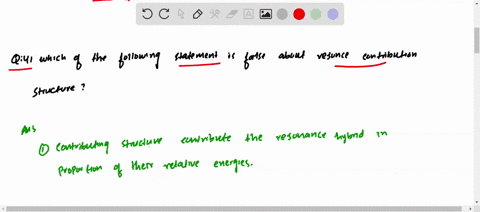 Q:41 which of the following statement is false about resonce contribution
structure ?
Ans
① Contributing structure contribute the resonance hybrid in
proportion of their relative energies.